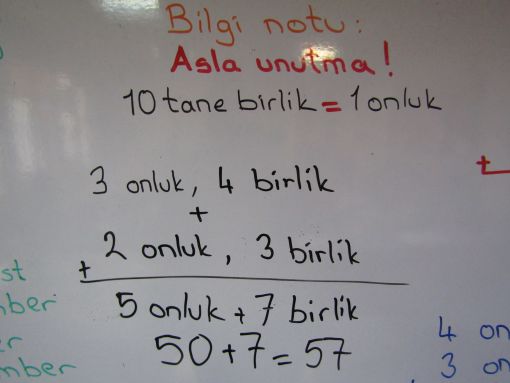 Bilgi notu:
Asla unutma!
10 tane birlik = 1 onluk
3 onluk, 4 birlik
+
2 onluk, 3 birlik
+
5 onluk + 7 birlik
50+7=57
+
4 on
3 on
st
mber